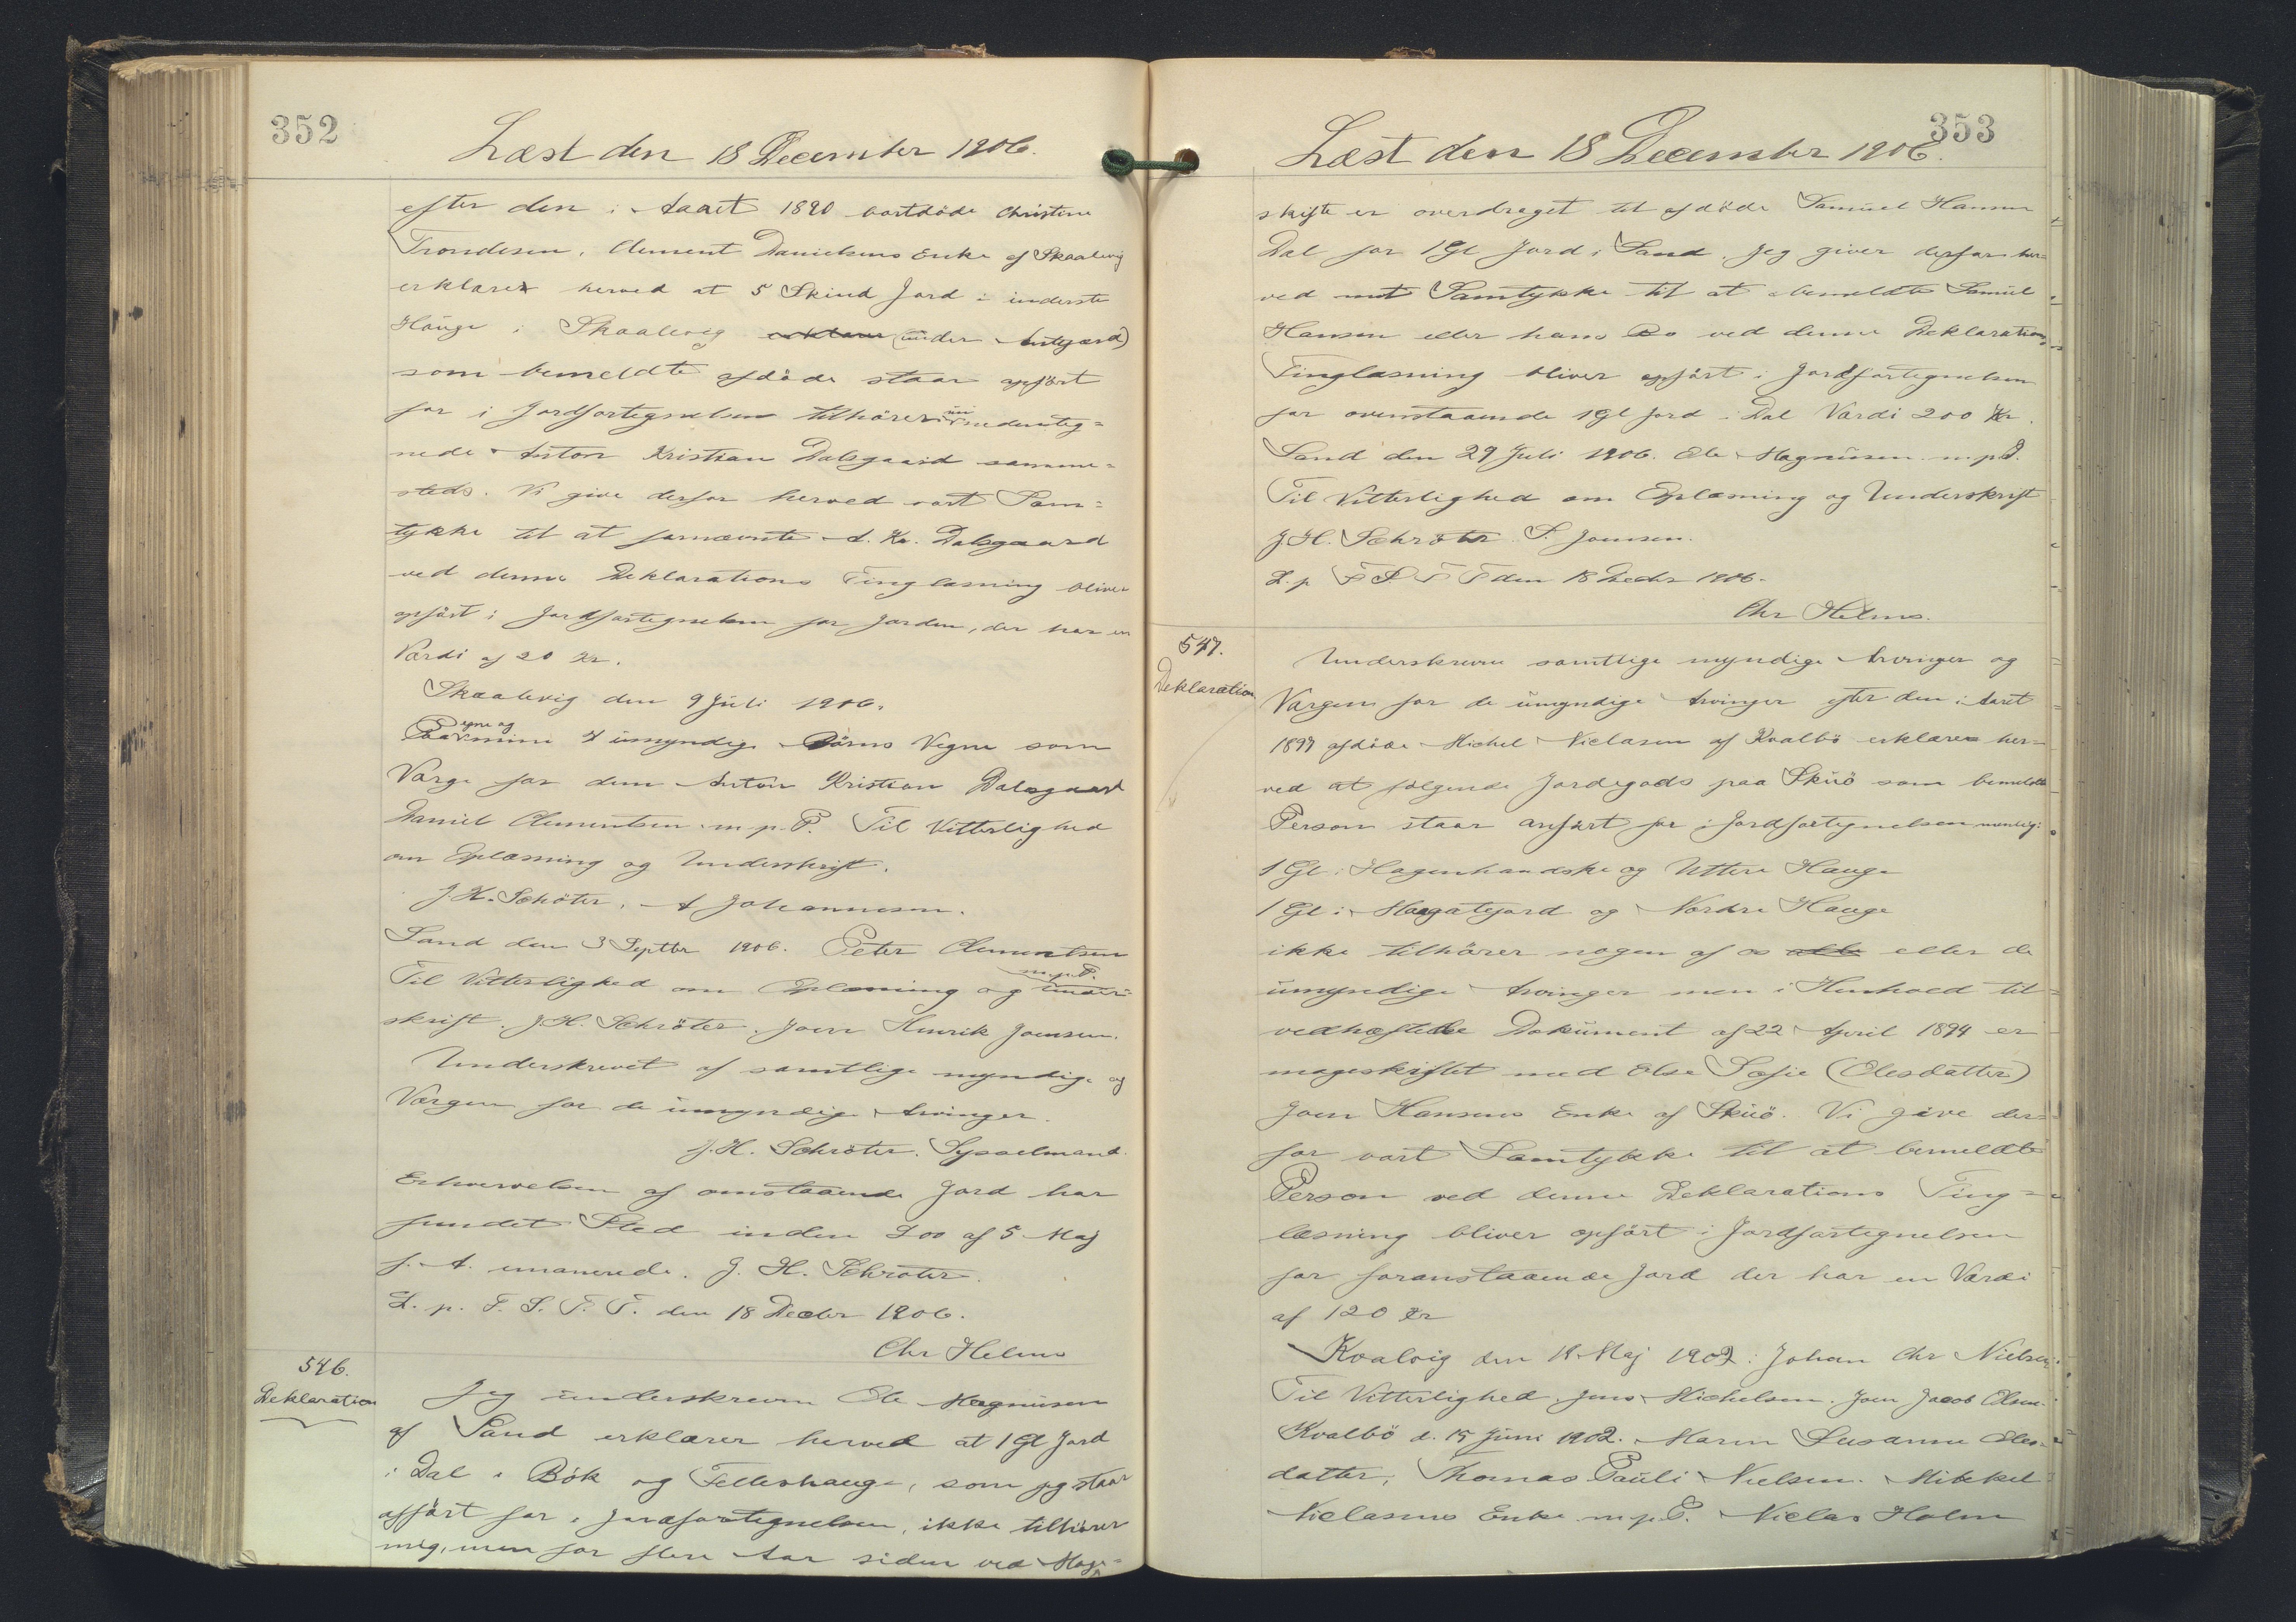 352
Læst den 18 December 1906.
efter den i Aaret 1890 bortdöde Christine
Trondesen, Clement Danielsens Enke af Skaalevig
erklærer herved at 5 Skind Jord i inderste
Hauge i Skaalevig erklærer (under Antegærd)
som bemeldte afdöde staar opfört
for i Jordfortegnelsen tilhörer nu medunteg=
nede Anton Kristian Dalsgaard samme=
steds. Vi give derfor herved vort Sam=
tykke til at fornævnte A. Kr. Dalsgaard
ved denne Deklarations Tinglæsning bliver
opfört i Jordfortegnelsen for Jorden, der har en
Værdi af 20 Kr.
Skaalevig den 9 Juli 1906.
Paa egne og mine 4 umyndige Börns Vegne som
Værge for dem Anton Kristian Dalsgaard
Daniel Clementsen m. p. P. Til Vitterlighed
om Oplæsning og Underskrift.
J. H. Schöter. A Johannesen.
Sand den 3 Septbr 1906. Peter Clementsen
m. p. P.
Til Vitterlighed om Oplæsning og Under=
skrift. J. H. Schröter. Joen Henrik Joensen.
Underskrevet af samtlige myndige og
Værgen for de umyndige Arvinger.
J. H. Schröter. Sysselmand.
Erhvervelsen af omstaaende Jord har
fundet Sted inden Lov af 5 Maj
f. A. emanerede. J. H. Schröter.
L. p. F. S. T. T. den 18 Decbr 1906.
Chr Helms
546.
Deklaration
Jeg underskrevne Ole Magnusen
af Sand erklærer herved at 1 Gl Jord
i Dal i Bök og Felleshauge, som jeg staar
opfört for i Jordfortegnelsen, ikke tilhörer
mig, men for flere Aar siden ved Mage=
353
Læst den 18 December 1906.
skifte er overdraget til afdöde Samuel Hansen
Dal for 1 Gl Jord i Sand. Jeg giver derfor her=
ved mit Samtykke til at bemeldte Samuel
Hansen eller hans Bo ved denne Deklarations
Tinglæsning bliver opfört i Jordfortegnelsen
for ovenstaaende 1 Gl Jord i Dal Værdi 200 Kr.
Sand den 29 Juli 1906. Ole Magnusen m. p. P.
Til Vitterlighed om Oplæsning og Underskrift
J. H. Schröter. S. Joensen.
L. p. F S T T den 18 Decbr 1906.
Chr Helms.
547.
Deklaration
Underskrevne samtlige myndige Arvinger og
Værgen for de umyndige Arvinger efter den i Aaret
1897 afdöde Michel Niclasen af Kvalbö erklærer her=
ved at fölgende Jordegods paa Skuö som bemeldte
Person staar anfört for i Jordfortegnelsen nemlig:
1 Gl. i Hagenhandske og Uttere Hauge
1 Gl. i Magatejord og Nordre Hauge
ikke tilhörer nogen af os alle eller de
umyndige Arvinger men i Henhold til
vedhæftede Dokument af 22 April 1894 er
mageskiftet med Else Sofie (Olesdatter)
Joen Hansens Enke af Skuö. Vi give der=
for vort Samtykke til at bemeldte
Person ved denne Deklarations Ting=
læsning bliver opfört i Jordfortegnelsen
for foranstaaende Jord der har en Værdi
af 120 Kr
Kvalvig den 18 Maj 1902: Johan Chr Nielsen.
Til Vitterlighed. Jens Michelsen. Joen Jacob Olsen.
Kvalbö d. 15 Juni 1902. Maren Susanne Oles=
datter, Thomas Pauli Nielsen. Mikkel
Niclasens Enke m. p. P. Niclas Holm